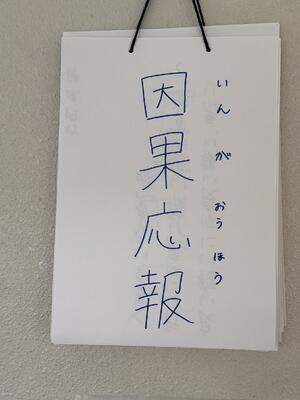 因果応報
いんがおうほう